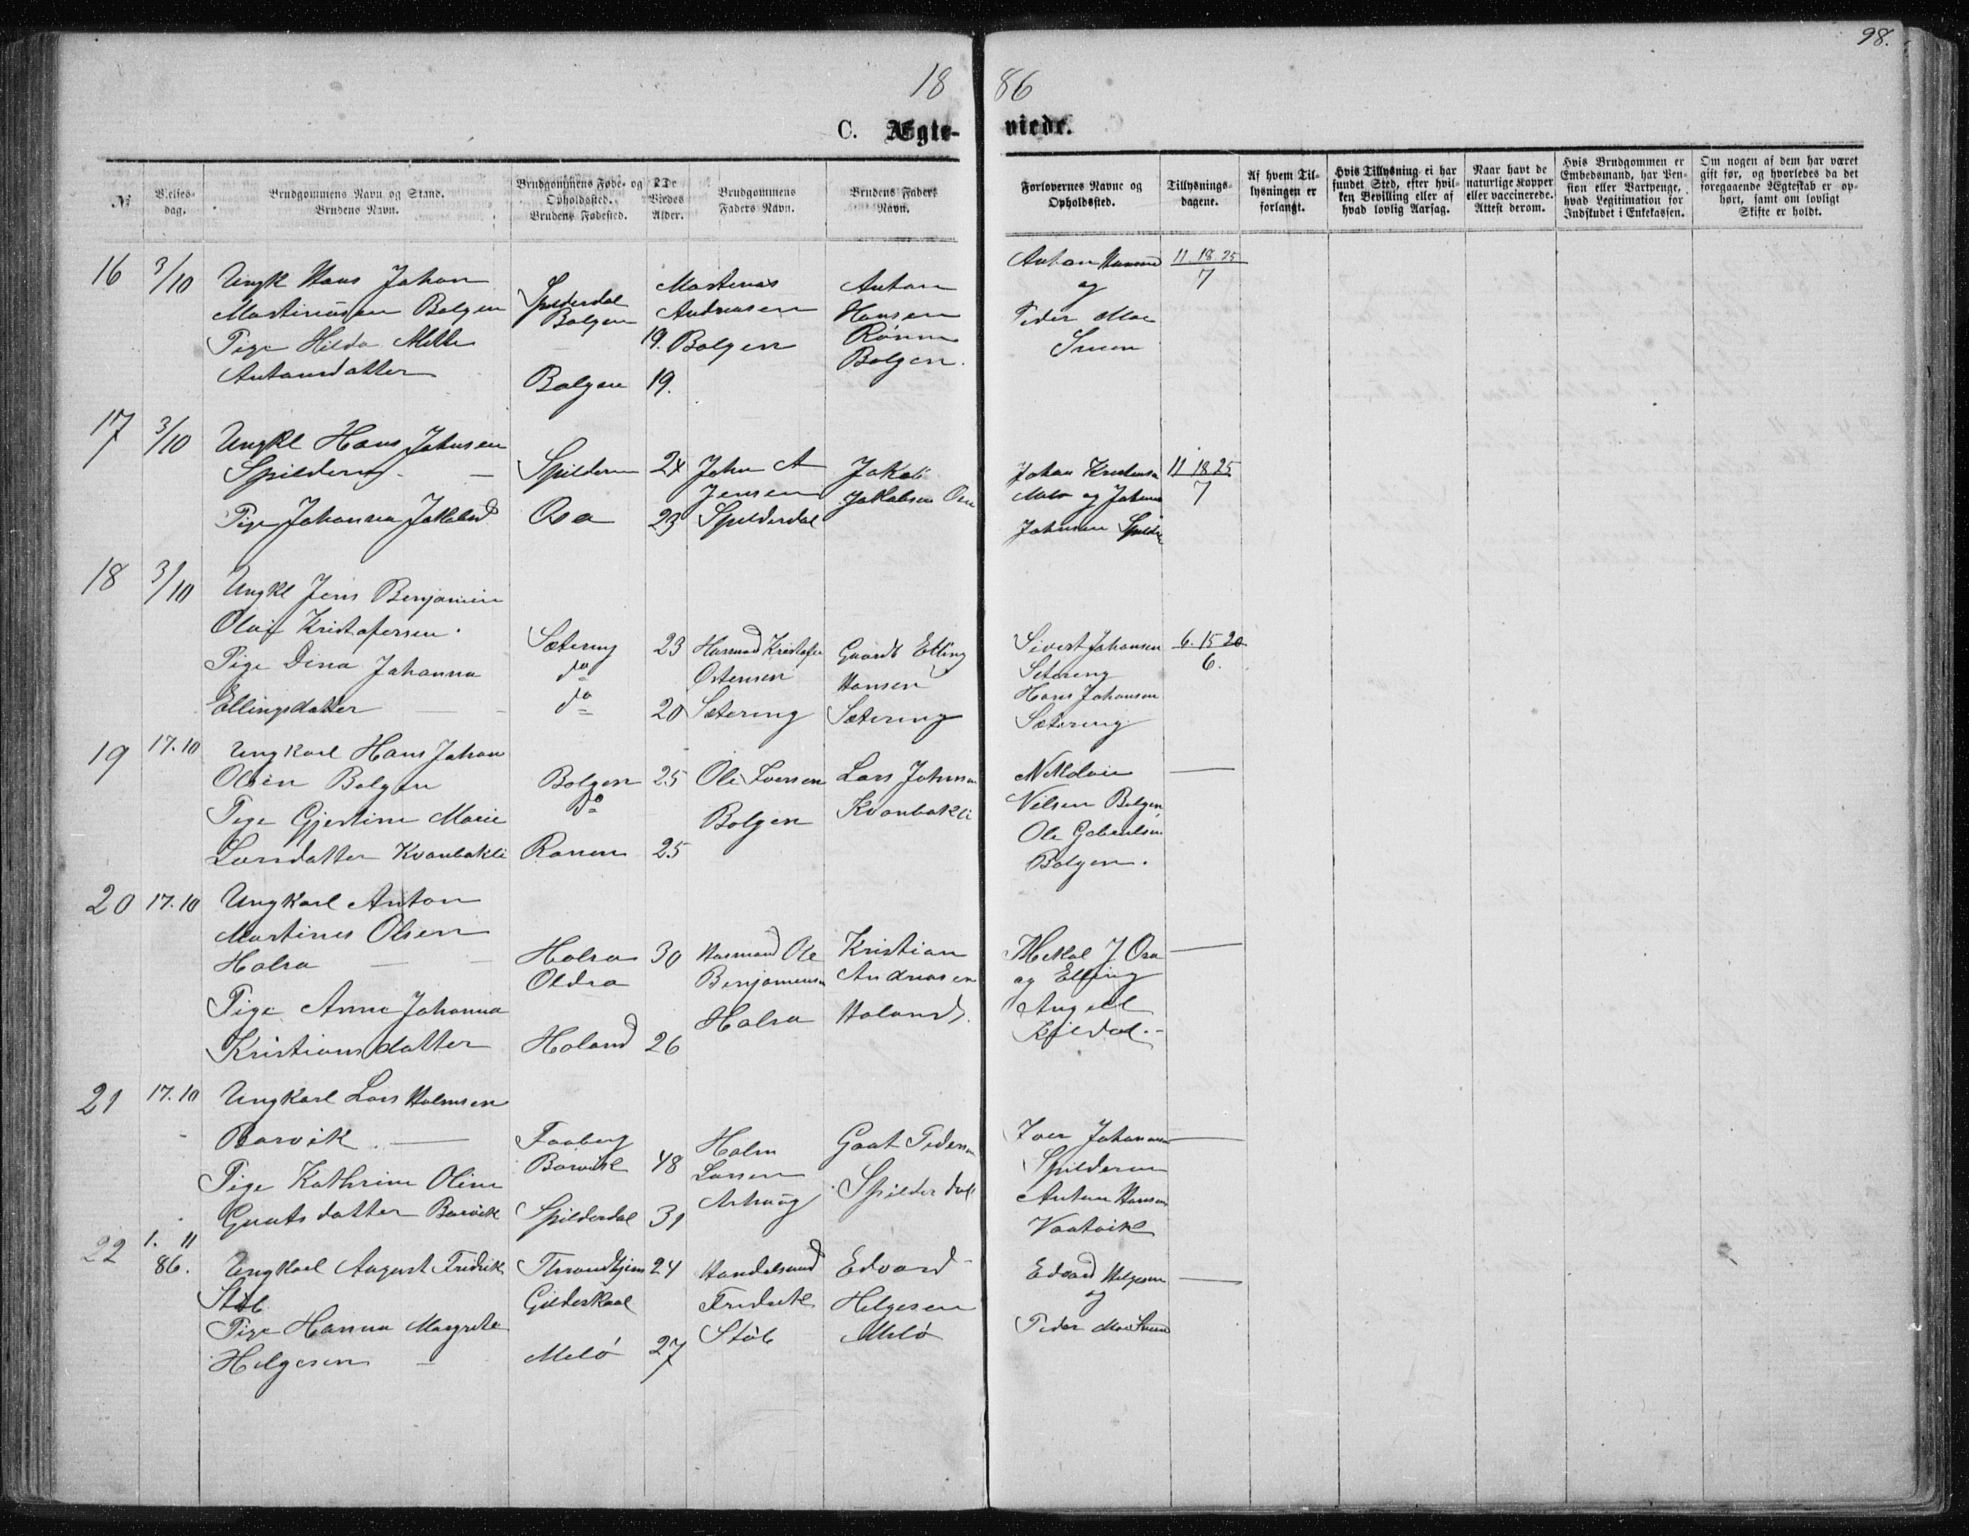 98.
18 86
C. Ægte- viede.
№
Vielses-
dag.
Brudgommens Navn og Stand.
Brudens Navn.
Brudgommens Føde- og
Opholdssted.
Brudens Fødested.
De
Viedes
Alder.
Brudgommens
Faders Navn.
Brudens Faders
Navn.
Forlovernes Navne og
Opholdssted.
Tillysnings-
dagene.
Af hvem Til-
lysningen er
forlangt.
Hvis Tillysning ei har
fundet Sted, efter hvil-
ken Bevilling eller af
hvad lovlig Aarsag.
Naar havt de
naturlige Kopper
eller vaccinerede.
Attest derom.
Hvis Brudgommen er
Embedsmand, har Pen-
sion eller Vartpenge,
hvad Legitimation for
Indskudet i Enkekassen.
Om nogen af dem har været
gift før, og hvorledes da det
foregaaende Ægteskab er op-
hørt, samt om lovligt
Skifte er holdt.
16 3/10
Ungk Hans Johan
Martinusen Bolgen
Pige Hilda Mille
Antonsdatter
Spilderdal
Bolgen
19.
Bolgen 19.
Martinus
Andreasen
Bolgen
Anton
Hansen
Rønne
Bolgen.
Anton Hansen
og
Peder Moe
11 18 25
7
17 3/10
Ungkl Hans Johnsen
Spildern
Pige Johanna Jakobsd
Spildern 24
Osa 23
John A
Jensen
Spilderdal
Jakob
Jakobsen Osa
Johan Kristensen
Melø og Johan
Johnsen
11 18 25
7
18 3/10
Ungkl Jens Benjamin
Olai Kristofersen.
Pige Dina Johanna
Ellingsdatter
Sætering 23
do
do 20
Husmand Kristofer
Ostensen
Sætering
Gaardb Elling
Hansen
Sætering
Sivert Johansen
Setering
Hans Johansen
Sætering
6. 15 20
6.
19 17.10
Ungkarl Hans Johan
Olsen Bolgen
Pige Gjertine Marie
Larsdatter Kvanbakli
Bolgen 25
do
Ranen 25
Ole Iversen
Bolgen
Lars Johnsen
Kvanbakli
Nikolai
Nilsen Bolgen
Ole Gabrielsen
Bolgen.
20 17.10
Ungkarl Anton
Martines Olsen
Halsa
Pige Anne Johanna
Kristiansdatter
Halsa 30
Oldra
Holand 26
Husmand Ole
Benjaminsen
Halsa
Kristian
Andreasen
Holand.
Mekal J Osa
og Elling
Angell
Kildal.
21 17.10
Ungkarl Lars Holmsen
Barvik
Pige Kathrine Oline
Gautsdatter Barvik
Faaberg
Barvik 48
Spilderdal 31
Holm
Larsen
Gaut Pedersen
Spilderdal
Iver Johansen
Spilderen
Anton Hansen
Vaatvik
22 1. 11
86.
Ungkarl August Fredrik
Støb
Pige Hanna Margrete
Helgesen
Throndhjem 24
Gildeskaal
Melø 27
Handelsmand
Fredrik
Støb
Edvard
Helgesen
Melø
Edvard Helgesen
og
Peder Moe